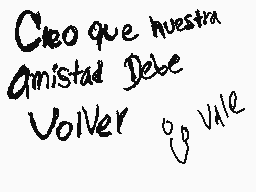 Creo que nuestra
amistad Debe
Volver
Vale